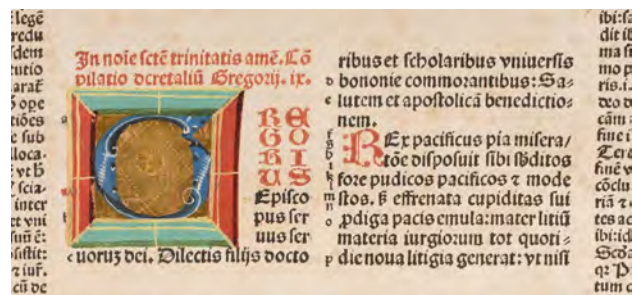 legē
redu
sdem
cutio
arat̄
s ope
tiōes
e sub
lloca.
vt b̄
scia/
inter
et vni
suū ē:
sistit:
τ iur̄.
cū de
In noīe sctē trinitatis amē. Cō
pilatio dcretaliū Gregorij. ix.
GRE
GO
RI
US
Episco
pus ser
uus ser
uoruȝ dei. Dilectis filijs docto
ribus et scholaribus vniuersis
bononie commorantibus: Sa⸗
lutem et apostolicā benedictio⸗
nem.
REx pacificus pia misera/
tōe disposuit sibi s̄bditos
fore pudicos pacificos τ mode
stos. s̄ effrenata cupiditas sui
ꝓdiga pacis emula: mater litiū
materia iurgiorum tot quoti⸗
die noua litigia generat: vt nisi
ibi: sa
dit ib
ma s
mo p
ris. i.
deo d
cām
fine i
Tere
finē v
cōclu
riā τ
tes ac
ibi: id
Scd̄a
qꝛ P
tum c